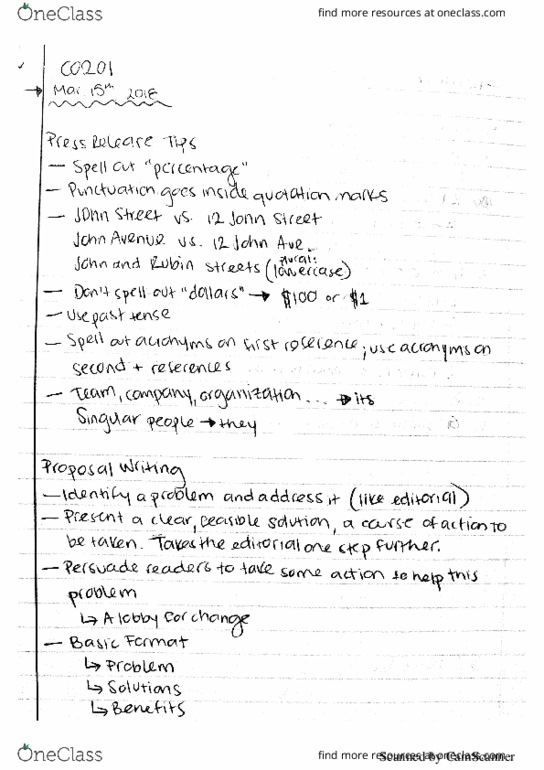 OneClass
find more resources at oneclass.com
CO201
→ Mar 15th 2018
Press Release Tips
— Spell out "percentage"
— Punctuation goes inside quotation marks
— John Street vs. 12 John Street
John Avenue vs. 12 John Ave.
plural:
John and Rubin streets (lowercase)
— Don't spell out "dollars" → $100 or $1
— Use past tense
— Spell out acronyms on first reference; use acronyms on
second + references
— Team, company, organization... → its
Singular people → they
Proposal Writing
— Identify a problem and address it (like editorial)
— Present a clear, feasible solution, a course of action to
be taken. Takes the editorial one step further.
— Persuade readers to take some action to help this
problem
↳ A lobby for change
— Basic Format
↳ Problem
↳ Solutions
↳ Benefits
OneClass
find more resources at oneclass.com
Scanned by CamScanner